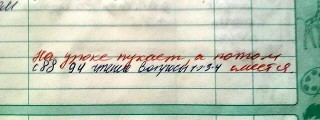 На уроке пукает, а потом
с 88 94 чтение вопросы 1-3-4 смеется